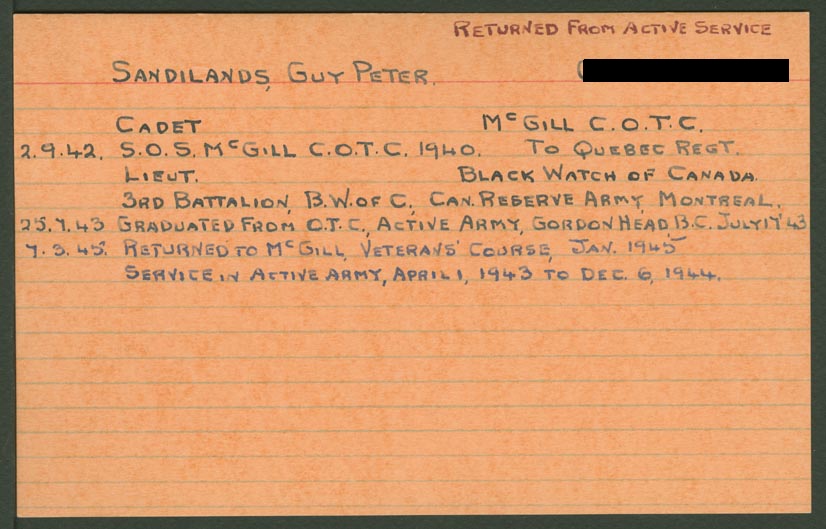 RETURNED FROM ACTIVE SERVICE
SANDILANDS, GUY PETER.
CADET McGILL C.O.T.C.
2.9.42. S.O.S. McGILL C.O.T.C. 1940. TO QUEBEC REGT.
LIEUT. BLACK WATCH OF CANADA.
3RD BATTALION, B.W. OF C., CAN. RESERVE ARMY, MONTREAL.
25.7.43 GRADUATED FROM O.T.C., ACTIVE ARMY, GORDON HEAD, B.C. JULY 17 '43
7.3.45. RETURNED TO McGILL, VETERANS' COURSE, JAN. 1945
SERVICE IN ACTIVE ARMY, APRIL 1, 1943 TO DEC. 6, 1944.